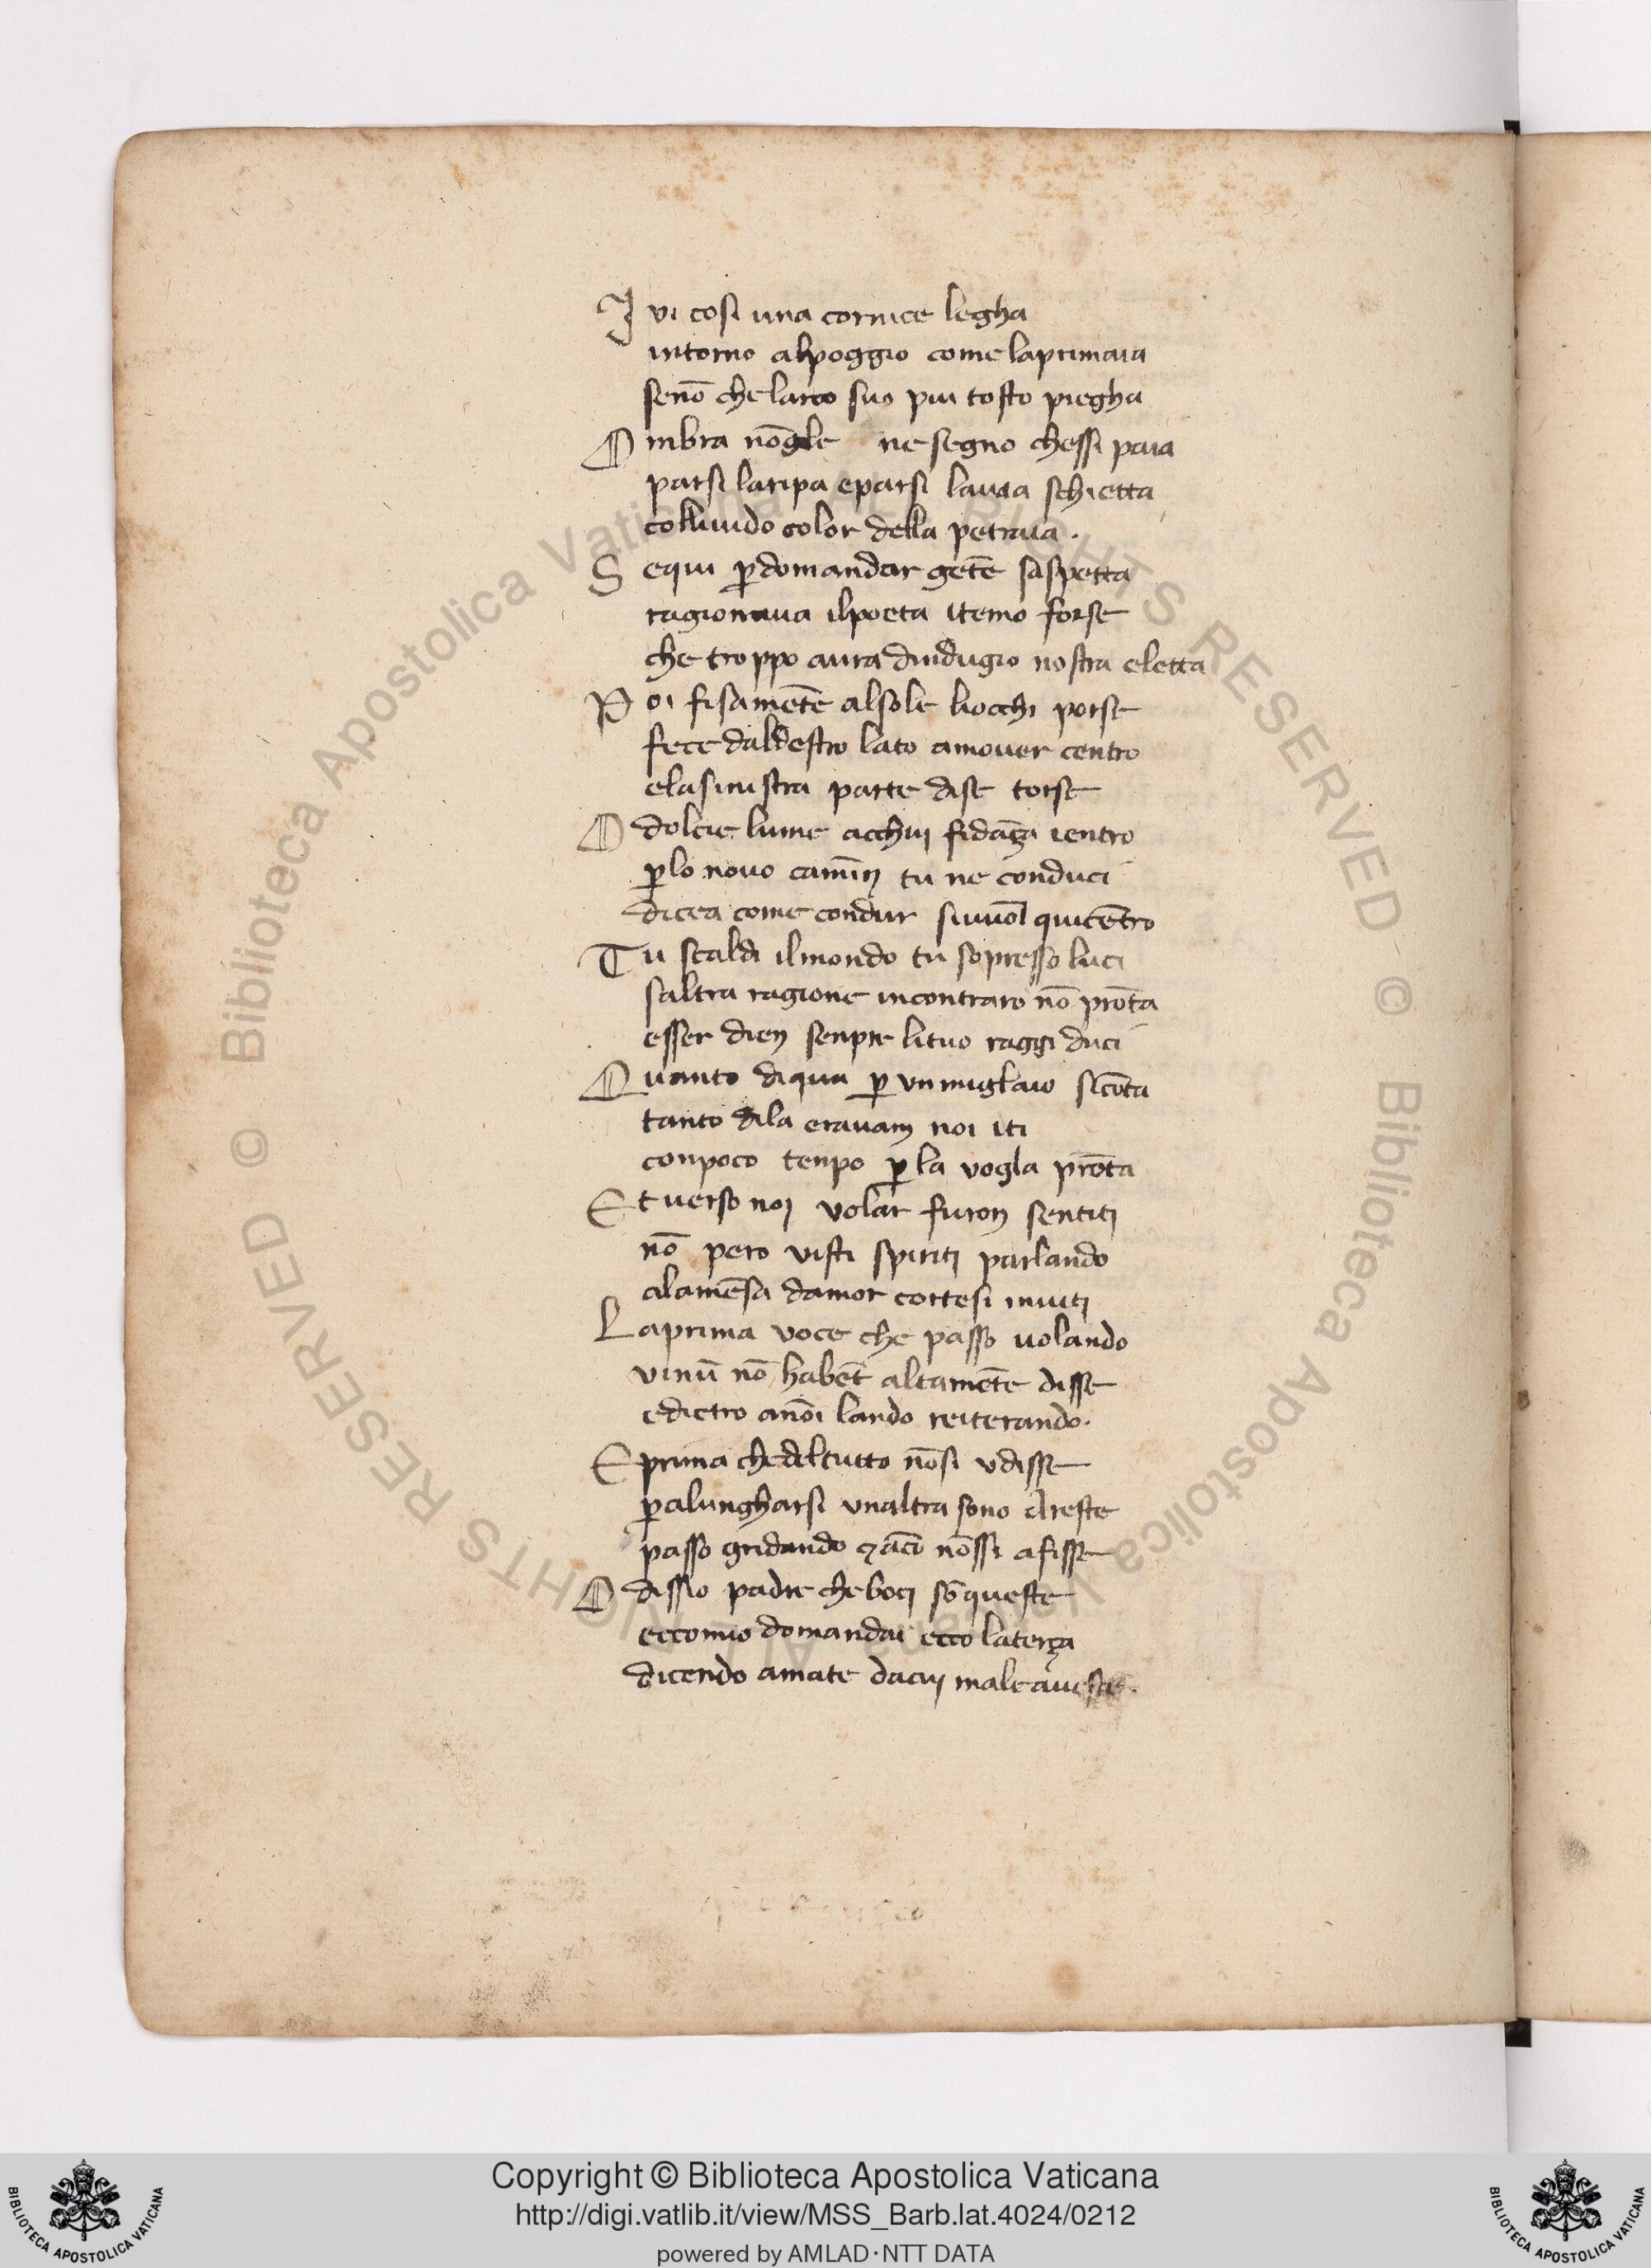 I vi cosi una cornice legha
intorno alpoggio come laprimaia
senō che larco suo piu tosto piegha
O mbra nōgle ne segno chessi paia
parsi laripa eparsi lavia schietta
collivido color della petraia.
S equi ꝑdomandar gētē saspetta
ragionava ilpoeta itemo forse
che troppo avra dindugio nostra eletta
P oi fisamētē alsole liocchi porse
fece daldestro lato amover centro
elasinistra parte dise torse
O dolcie lume acchui fidāça ientro
ꝑlo novo camin̄ tu ne conduci
dicea come condur sivuol quicētro
T u scaldi ilmondo tu sopresso luci
saltra ragione incontraro nō prōta
esser dien senpre lituo raggi duci
Q uanto diqua ꝑ un miglaio sicōta
tanto dila eravam noi iti
conpoco tenpo ꝑ la vogla prōta
E t verso noi volar furon sentiti
nō pero visti spiriti parlando
alamēsa damor cortesi inviti
L aprima voce che passo volando
vinū nō habēt altamētē disse
edietro anōi lando reiterando.
E prima chedeltutto nōsi udisse
ꝑalungharsi unaltra sono Areste
passo gridando ⁊ācō nōssi afisse
O dissio padre cheboci sōqueste
eccomio domandai ecco laterça
dicendo amate dacui male aveste.
Copyright © Biblioteca Apostolica Vaticana
http://digi.vatlib.it/view/MSS_Barb.lat.4024/0212
powered by AMLAD·NTT DATA
BIBLIOTECA APOSTOLICA VATICANA
BIBLIOTECA APOSTOLICA VATICANA
© Biblioteca Apostolica Vaticana ALL RIGHTS RESERVED
© Biblioteca Apostolica Vaticana ALL RIGHTS RESERVED